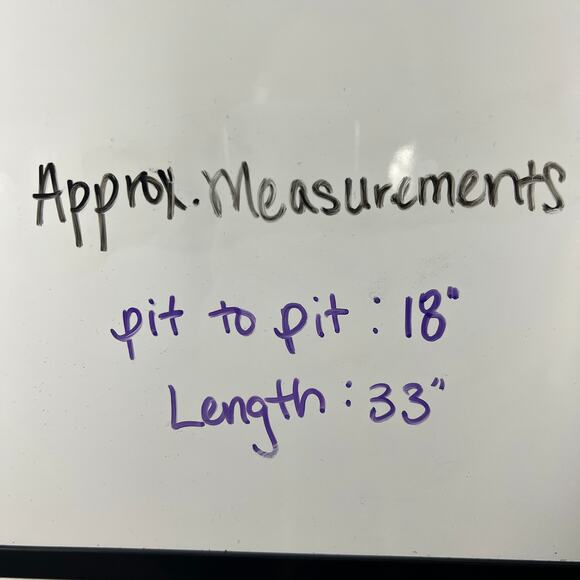 Approx. Measurements
pit to pit : 18"
Length : 33"